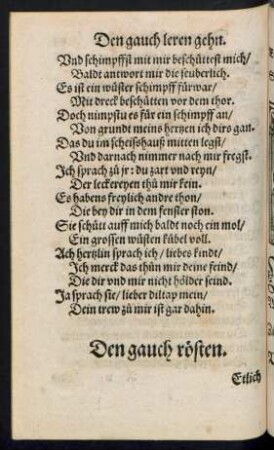 Den gauch leren gehn.
Vnd schimpffst mit mir beschüttest mich/
Baldt antwort mir die seuberlich.
Es ist ein wüster schimpff fürwar/
Mit dreck beschütten vor dem thor.
Doch nimpstu es für ein schimpff an/
Von grundt meins hertzen ich dirs gan.
Das du im scheißhauß mitten legst/
Vnd darnach nimmer nach mir fregst.
Ich sprach zů jr: du zart vnd reyn/
Der leckereyen thů mir kein.
Es habens freylich andre thon/
Die bey dir in dem fenster ston.
Sie schütt auff mich baldt noch ein mol/
Ein grossen wůsten kübel voll.
Ach hertzlin sprach ich/ liebes kindt/
Ich merck das thůn mir deine feind/
Die dir vnd mir nicht hölder seind.
Ja sprach sie/ lieber diltap mein/
Dein trew zů mir ist gar dahin.
Den gauch rösten.
Etlich